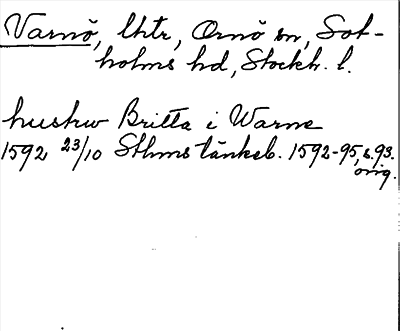 Varnö, Uhtr, Ornö sn, Sot-
holms hd, Stockh. l.
hustrw Britta i Warne
1592 23/10 Sthms tänkeb. 1592-95, s. 93.
orig.